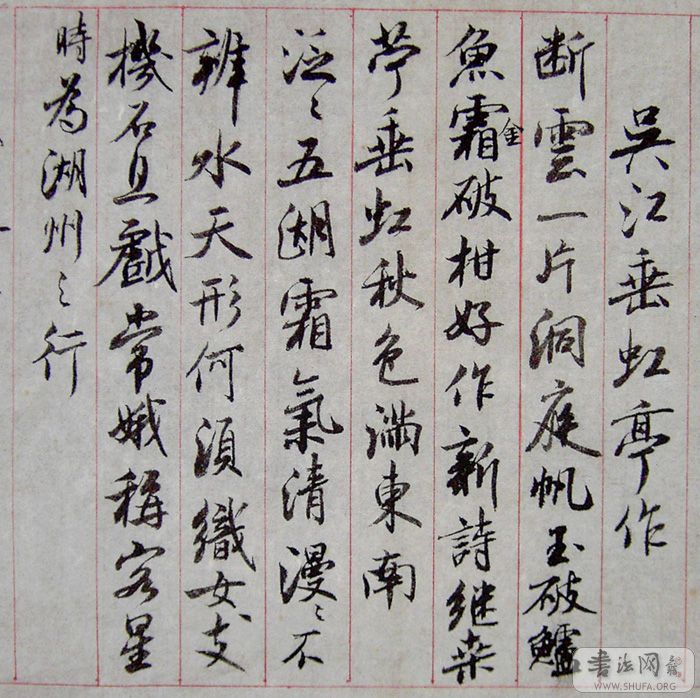 吳江垂虹亭作
断雲一片洞庭帆玉破鱸
魚霜金破柑好作新詩継桒
苧垂虹秋色滿東南
泛〻五湖霜氣清漫〻不
辨水天形何須織女支
機石且戲常娥稱客星
時為湖州之行
書法网
WWW.SHUFA.ORG